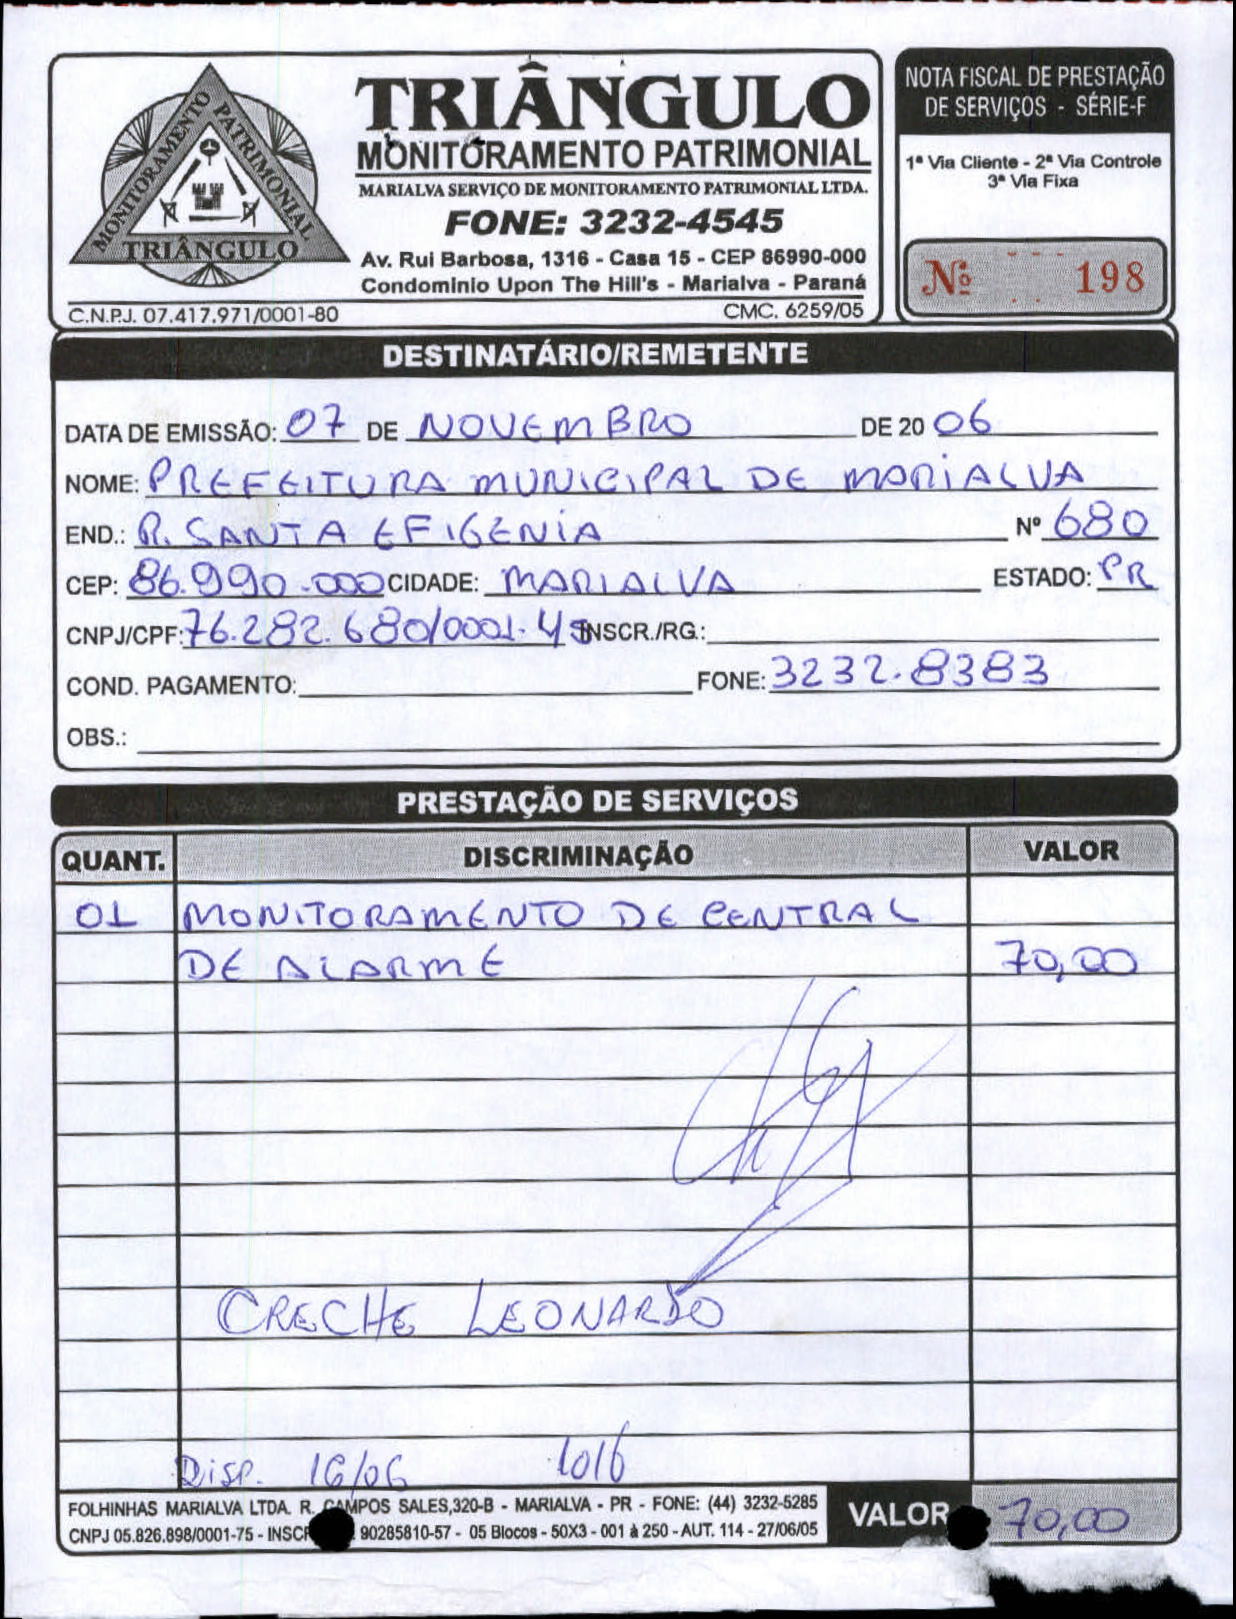 TRIÂNGULO
MONITORAMENTO PATRIMONIAL
MARIALVA SERVIÇO DE MONITORAMENTO PATRIMONIAL LTDA.
FONE: 3232-4545
Av. Rui Barbosa, 1316 - Casa 15 - CEP 86990-000
Condominio Upon The Hill's - Marialva - Paraná
MONITORAMENTO PATRIMONIAL
TRIÂNGULO
C.N.P.J. 07.417.971/0001-80 CMC. 6259/05
NOTA FISCAL DE PRESTAÇÃO
DE SERVIÇOS - SÉRIE-F
1ª Via Cliente - 2ª Via Controle
3ª Via Fixa
Nº 198
DESTINATÁRIO/REMETENTE
DATA DE EMISSÃO: 07 DE NOVEMBRO DE 20 06
NOME: PREFEITURA MUNICIPAL DE MARIALVA
END.: R. SANTA EFIGENIA Nº 680
CEP: 86.990.000 CIDADE: MARIALVA ESTADO: PR
CNPJ/CPF: 76.282.680/0001-45 INSCR./RG.:
COND. PAGAMENTO: FONE: 3232.8383
OBS.:
PRESTAÇÃO DE SERVIÇOS
QUANT. DISCRIMINAÇÃO VALOR
01 MONITORAMENTO DE CENTRAL
DE ALARME 70,00
CRECHE LEONARDO
DISP. 16/06 1016
FOLHINHAS MARIALVA LTDA. R. CAMPOS SALES,320-B - MARIALVA - PR - FONE: (44) 3232-5285
CNPJ 05.826.898/0001-75 - INSCR 90285810-57 - 05 Blocos - 50X3 - 001 à 250 - AUT. 114 - 27/06/05
VALOR 70,00